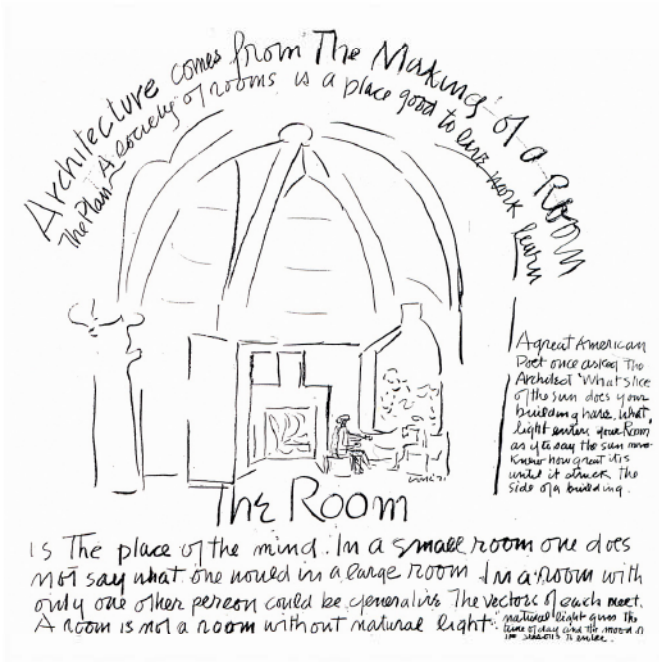 Architecture comes from The Making of a Room
The Plan A society of rooms is a place good to live work learn
A great American
Poet once asked The
Architect "What slice
of the sun does your
building have. What
light enters your Room"
as if to say the sun never
knew how great it is
until it struck the
side of a building.
The Room
Is The place of the mind. In a small room one does
not say what one would in a large room. In a room with
only one other person could be generative The vectors of each meet.
A room is not a room without natural light.
natural light gives the
time of day and the mood of
the seasons to enter.